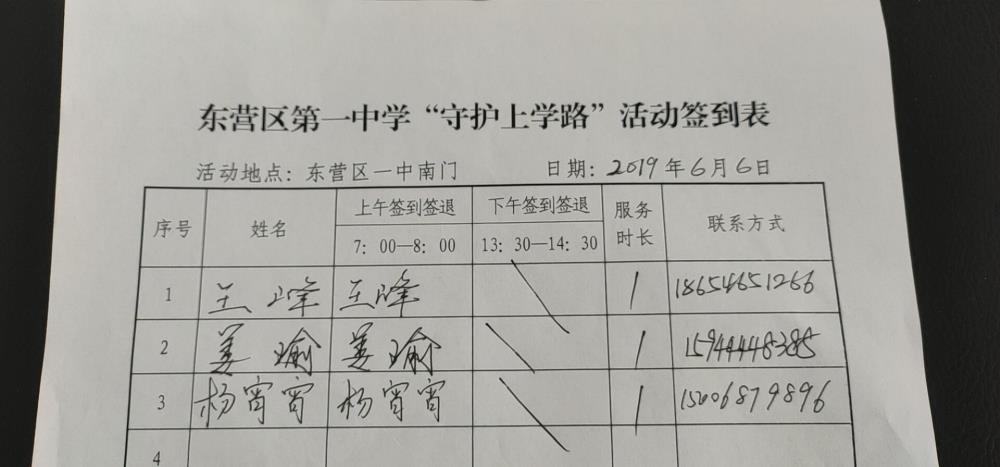 东营区第一中学“守护上学路”活动签到表
活动地点：东营区一中南门 日期：2019年6月6日
序号 姓名 上午签到签退 下午签到签退 服务时长 联系方式
7：00—8：00 13：30—14：30
1 王峰 王峰 1 18654651266
2 姜瑜 姜瑜 1 15944448385
3 杨宵宵 杨宵宵 1 15006879896
4